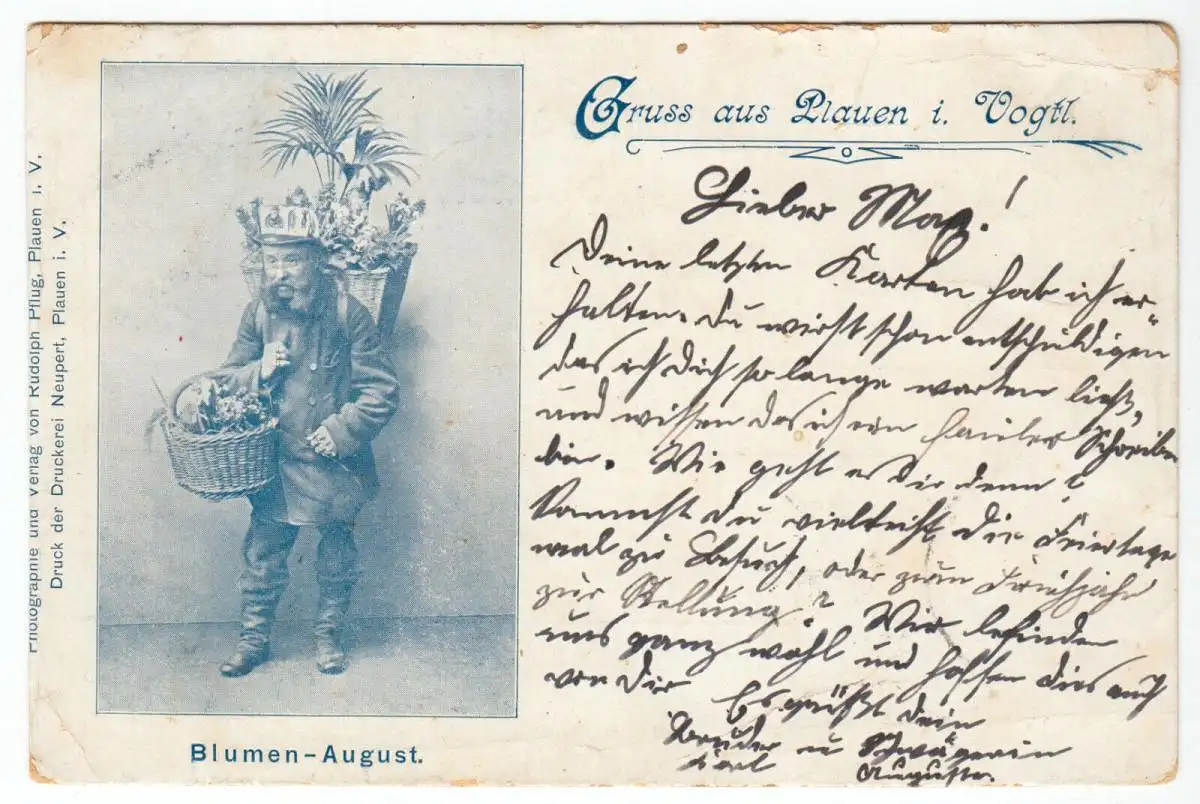 Photographie und Verlag von Rudolph Pflug, Plauen i. V.
Druck der Druckerei Neupert, Plauen i. V.
Gruss aus Plauen i. Vogtl.
Blumen-August.
Lieber Max!
Deine letzten Karten hab ich er-
halten. Du wirst schon entschuldigen
das ich Dich so lange warten ließ,
und wissen das ich ein fauler Schreiber
bin. Wie geht es Dir denn?
Kommst Du vielleicht die Feiertage
mal zu Besuch, oder zum Frühjahr
zur Stellung? Wir befinden
uns ganz wohl und hoffen dies auch
von Dir
Es grüßt Dein
Bruder u Schwägerin
Karl Auguste.